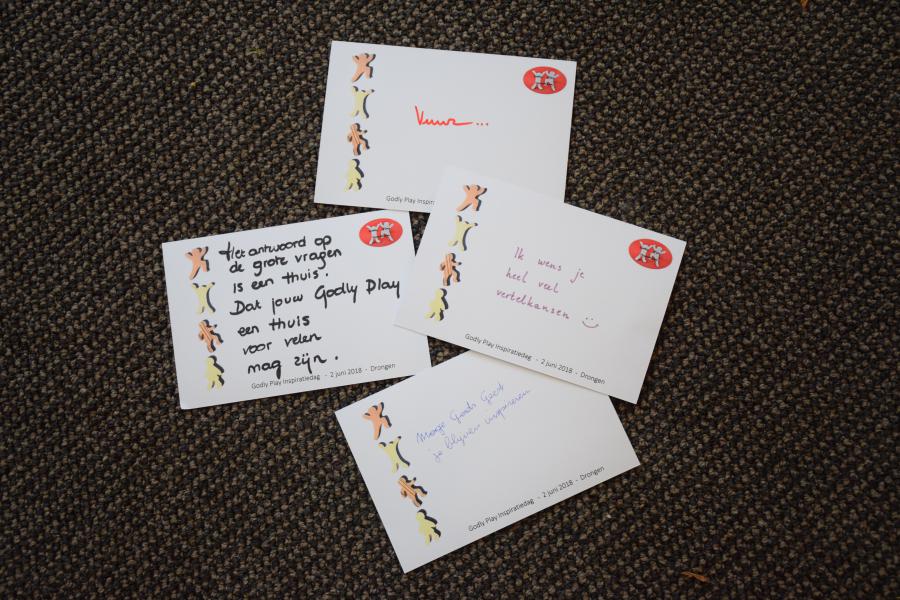 Vuur...
Godly Play Inspira
Het antwoord op
de grote vragen
is een thuis.
Dat jouw Godly Play
een thuis
voor velen
mag zijn.
Godly Play Inspiratiedag - 2 juni 2018 - Drongen
Ik wens je
heel veel
vertelkansen
Godly Play Inspiratiedag - 2 juni 2018 - Drongen
Moge Gods Geest
je blijven inspireren
Godly Play Inspiratiedag - 2 juni 2018 - Drongen